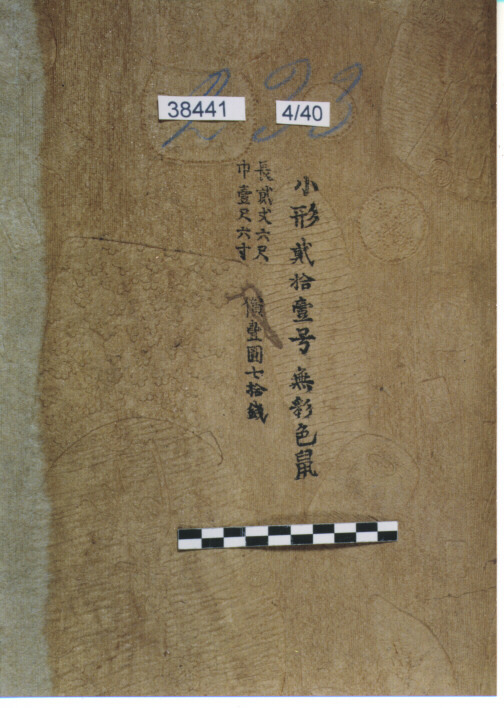 233
38441
4/40
小形貳拾壹号 無彩色鼠
長貳丈六尺
巾壹尺六寸
價壹圓七拾錢